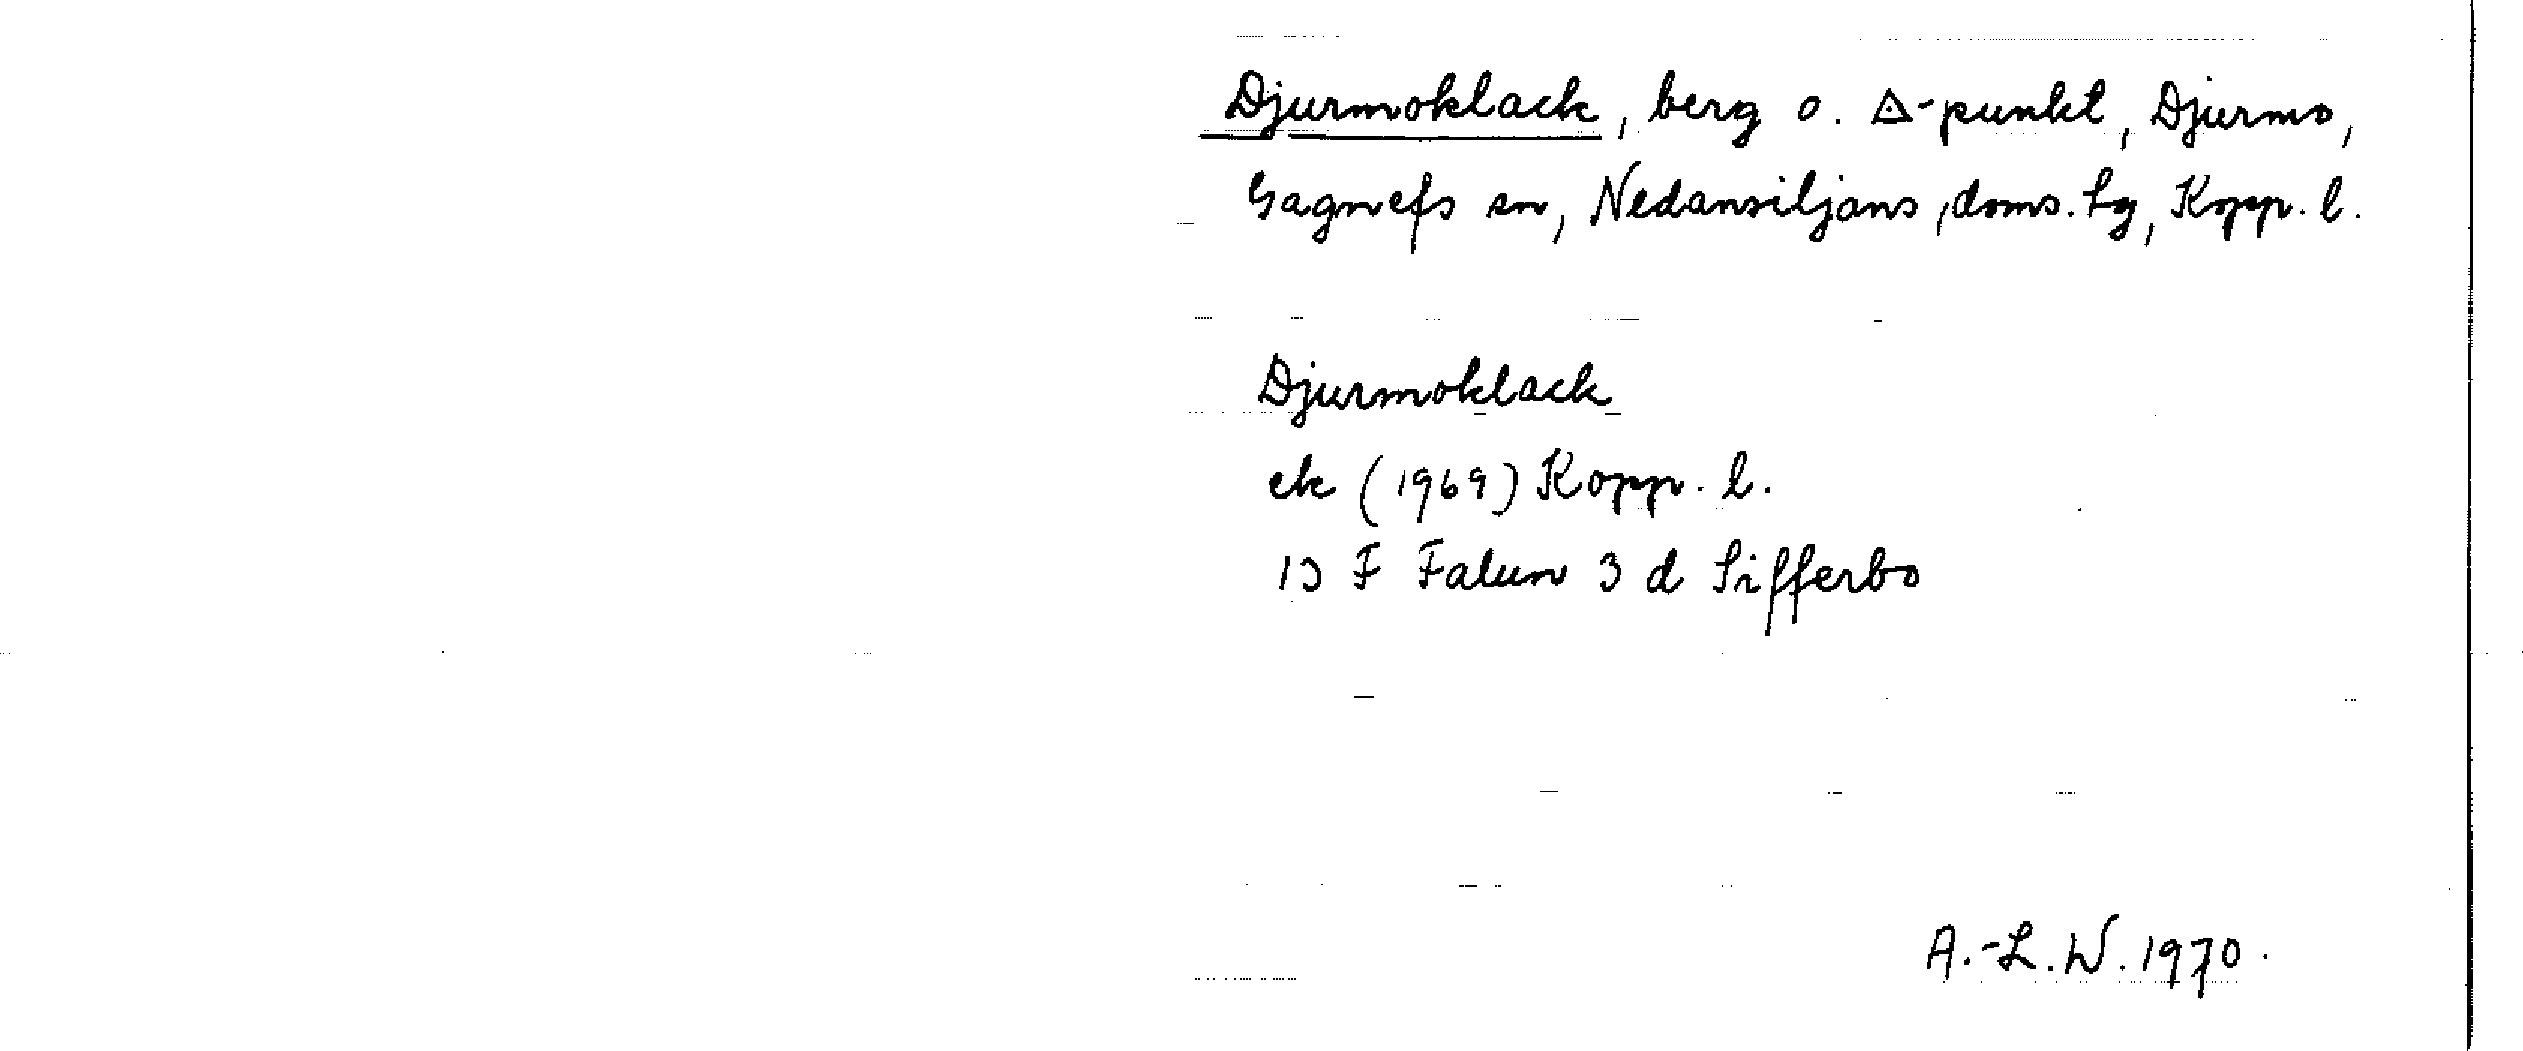 Djurmoklack, berg o. △-punkt, Djurmo,
Gagnefs sn, Nedansiljans, doms. tg, Kopp. l.
Djurmoklack
ek (1969) Kopp. l.
13 F Falun 3 d Sifferbo
A.-L.W. 1970.